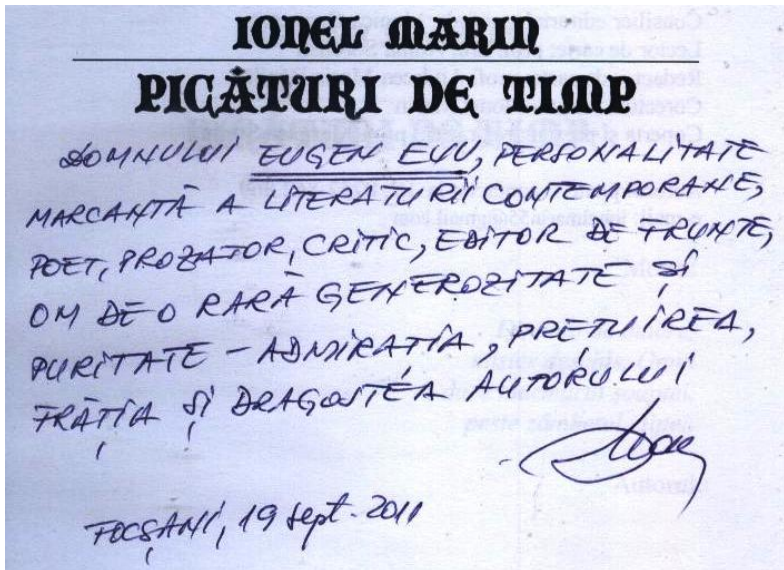 IONEL MARIN
PICĂTURI DE TIMP
DOMNULUI EUGEN EVU, PERSONALITATE
MARCANTĂ A LITERATURII CONTEMPORANE,
POET, PROZATOR, CRITIC, EDITOR DE FRUNTE,
OM DE O RARĂ GENEROZITATE ȘI
PURITATE – ADMIRAȚIA, PREȚUIREA,
FRĂȚIA ȘI DRAGOSTEA AUTORULUI
FOCȘANI, 19 sept. 2011